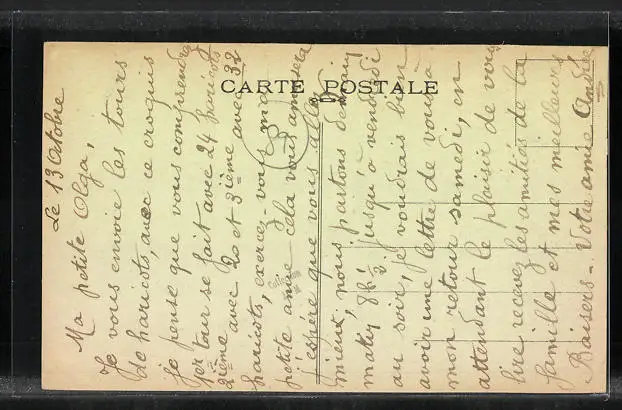 CARTE POSTALE
Le 13 Octobre
Ma petite Olga,
Je vous envoie les tours
de haricots, avec ce croquis
je pense que vous comprendrez
1er tour se fait avec 24 haricots
2ième avec 20 et 3ième avec 32
haricots, exercez-vous ma
petite amie cela vous amusera
j'espère que vous allez
mieux, nous partons demain
matin 8h 1/2 jusqu'à vendredi
au soir, je voudrais bien
avoir une lettre de vous à
mon retour samedi, en
attendant le plaisir de vous
lire recevez les amitiés de la
famille et mes meilleurs
Baisers - Votre amie Andrée